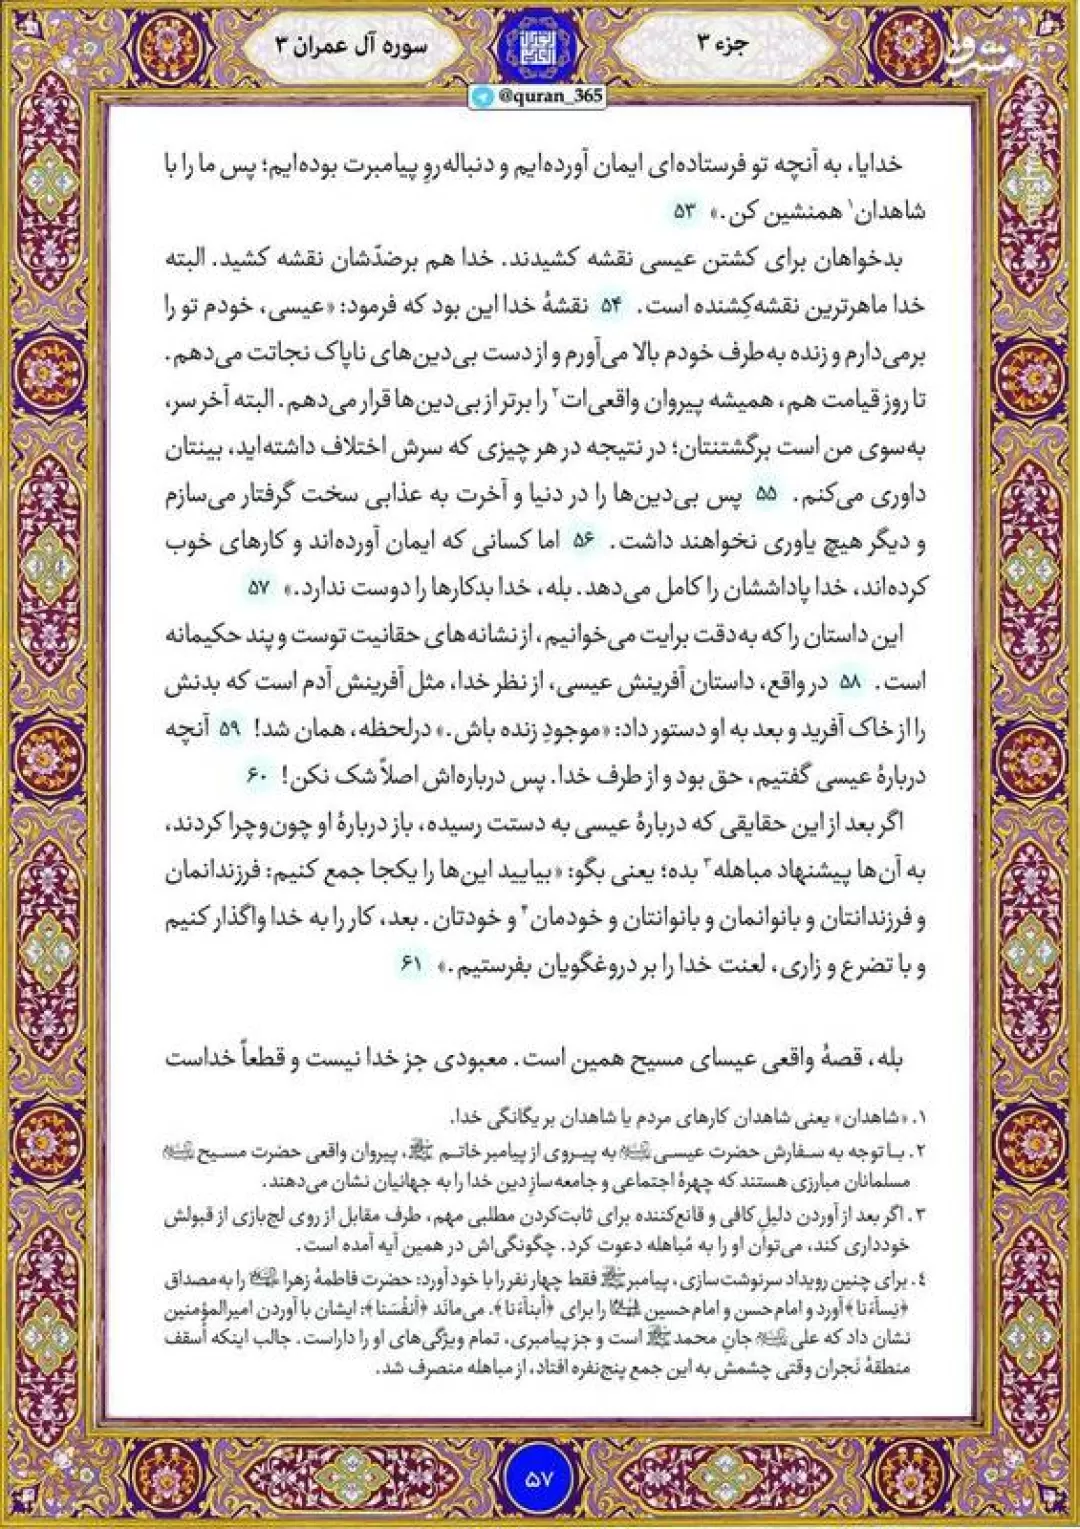 جزء ۳
سوره آل عمران ۳
مشرق
mashreghnews.ir
@quran_365
خدایا، به آنچه تو فرستاده‌ای ایمان آورده‌ایم و دنباله‌روِ پیامبرت بوده‌ایم؛ پس ما را با
شاهدان۱ همنشین کن.» ۵۳
بدخواهان برای کشتن عیسی نقشه کشیدند. خدا هم برضدّشان نقشه کشید. البته
خدا ماهرترین نقشه‌کِشنده است. ۵۴ نقشهٔ خدا این بود که فرمود: «عیسی، خودم تو را
برمی‌دارم و زنده به‌طرف خودم بالا می‌آورم و از دست بی‌دین‌های ناپاک نجاتت می‌دهم.
تا روز قیامت هم، همیشه پیروان واقعی‌ات۲ را برتر از بی‌دین‌ها قرار می‌دهم. البته آخر سر،
به‌سوی من است برگشتنتان؛ در نتیجه در هر چیزی که سرش اختلاف داشته‌اید، بینتان
داوری می‌کنم. ۵۵ پس بی‌دین‌ها را در دنیا و آخرت به عذابی سخت گرفتار می‌سازم
و دیگر هیچ یاوری نخواهند داشت. ۵۶ اما کسانی که ایمان آورده‌اند و کارهای خوب
کرده‌اند، خدا پاداششان را کامل می‌دهد. بله، خدا بدکارها را دوست ندارد.» ۵۷
این داستان را که به‌دقت برایت می‌خوانیم، از نشانه‌های حقانیت توست و پند حکیمانه
است. ۵۸ در واقع، داستان آفرینش عیسی، از نظر خدا، مثل آفرینش آدم است که بدنش
را از خاک آفرید و بعد به او دستور داد: «موجودِ زنده باش.» درلحظه، همان شد! ۵۹ آنچه
دربارهٔ عیسی گفتیم، حق بود و از طرف خدا. پس درباره‌اش اصلاً شک نکن! ۶۰
اگر بعد از این حقایقی که دربارهٔ عیسی به دستت رسیده، باز دربارهٔ او چون‌وچرا کردند،
به آن‌ها پیشنهاد مباهله۳ بده؛ یعنی بگو: «بیایید این‌ها را یکجا جمع کنیم: فرزندانمان
و فرزندانتان و بانوانمان و بانوانتان و خودمان۴ و خودتان. بعد، کار را به خدا واگذار کنیم
و با تضرع و زاری، لعنت خدا را بر دروغگویان بفرستیم.» ۶۱
بله، قصهٔ واقعی عیسای مسیح همین است. معبودی جز خدا نیست و قطعاً خداست
۱. «شاهدان» یعنی شاهدان کارهای مردم یا شاهدان بر یگانگی خدا.
۲. با توجه به سفارش حضرت عیسی به پیروی از پیامبر خاتم ﷺ، پیروان واقعی حضرت مسیح
مسلمانان مبارزی هستند که چهرهٔ اجتماعی و جامعه‌سازِ دین خدا را به جهانیان نشان می‌دهند.
۳. اگر بعد از آوردن دلیلِ کافی و قانع‌کننده برای ثابت‌کردن مطلبی مهم، طرف مقابل از روی لج‌بازی از قبولش
خودداری کند، می‌توان او را به مُباهله دعوت کرد. چگونگی‌اش در همین آیه آمده است.
۴. برای چنین رویداد سرنوشت‌سازی، پیامبر ﷺ فقط چهار نفر را با خود آورد: حضرت فاطمهٔ زهرا را به‌مصداق
﴿نِساءَنا﴾ آورد و امام حسن و امام حسین را برای ﴿أبناءَنا﴾. می‌مانَد ﴿أنفُسَنا﴾: ایشان با آوردن امیرالمؤمنین
نشان داد که علی جانِ محمد ﷺ است و جز پیامبری، تمام ویژگی‌های او را داراست. جالب اینکه اُسقف
منطقهٔ نَجران وقتی چشمش به این جمع پنج‌نفره افتاد، از مباهله منصرف شد.
۵۷